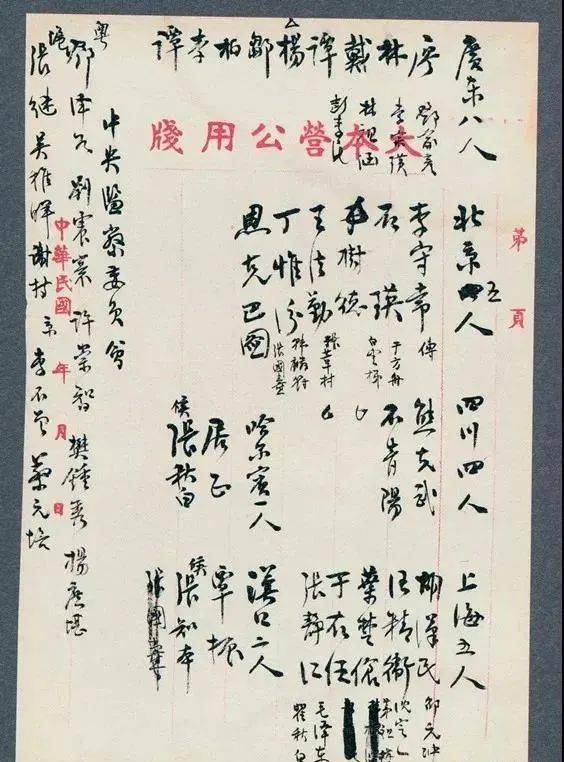 大本營公用牋
第 頁
廣東八人 北京五人 四川四人 上海五人
廖 李守常 傳 熊克武 胡漢民 邵元冲
鄧家彥
林 石瑛 于方舟 石青陽 汪精衛 沈定一
戴 樹德 白雲梯 葉楚傖 茅祖權
林祖涵
譚 王法勤 于右任
彭素民
楊 丁惟汾 韓麟符 張國燾 張靜江 毛澤東 瞿秋白
鄒 恩克巴圖
柏 哈爾賓一人 漢口二人
李 居正 覃振
譚 候張秋白 候張知本
中央監察委員會
粵
鄧澤如 劉震寰 許崇智 樊鍾秀 楊庶堪
張繼 吳稚暉 謝持 京 李石曾 蔡元培
中華民國 年 月 日